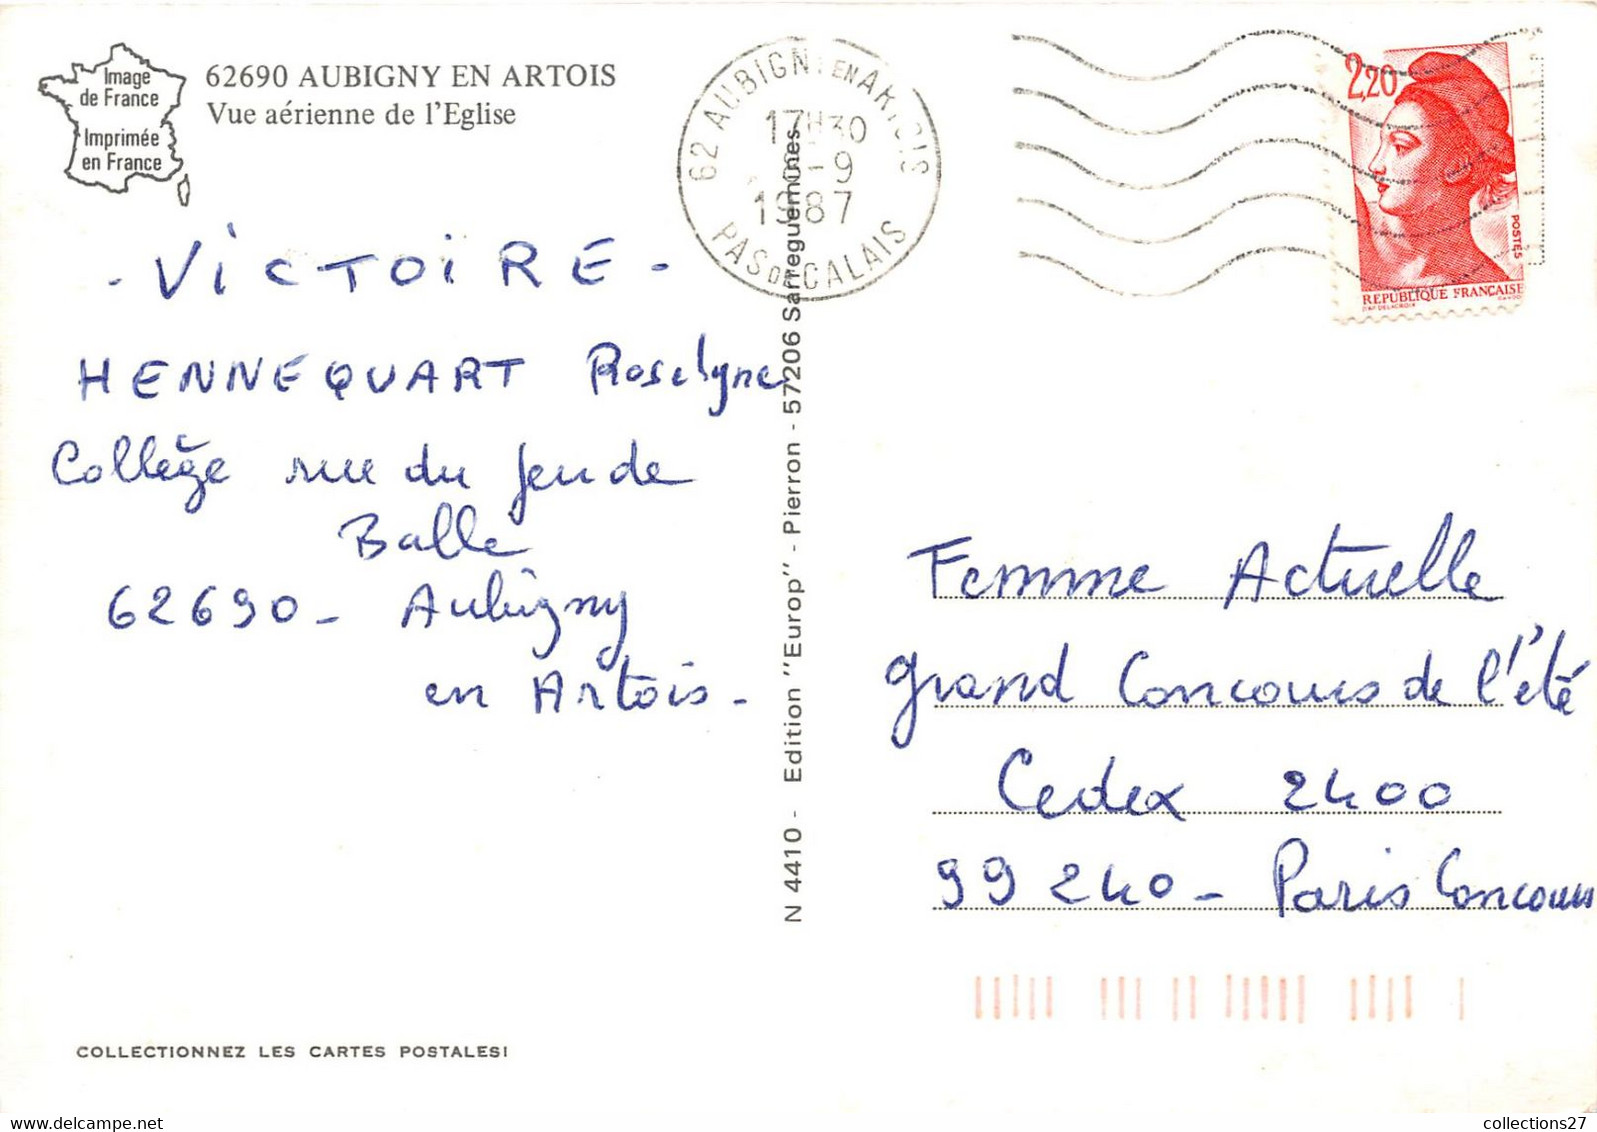 Image
de France
Imprimée
en France
62690 AUBIGNY EN ARTOIS
Vue aérienne de l'Eglise
62 AUBIGNY EN ARTOIS
17H30
-9
1987
PAS DE CALAIS
2,20
POSTES
REPUBLIQUE FRANÇAISE
- VICTOIRE -
HENNEQUART Roselyne
Collège rue du jeu de
Balle
62690 - Aubigny
en Artois -
N 4410 - Edition "Europ" - Pierron - 57206 Sarreguemines
Femme Actuelle
grand Concours de l'été
Cedex 2400
99240 - Paris Concours
COLLECTIONNEZ LES CARTES POSTALES!
collections27